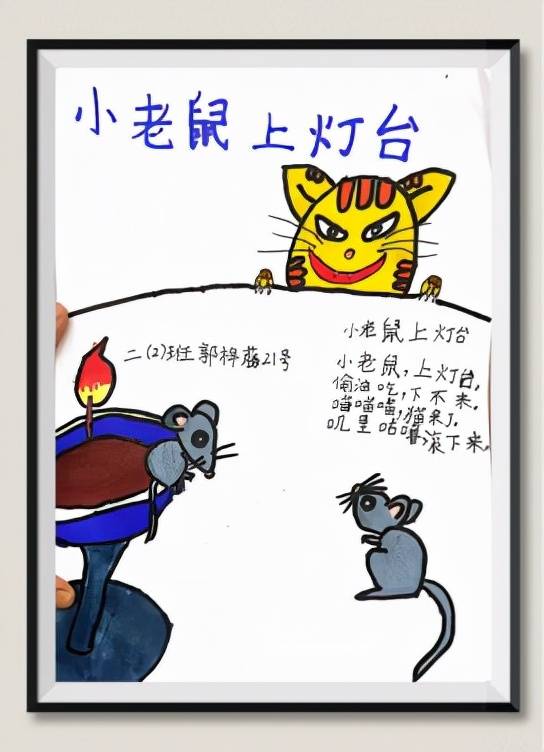 小老鼠上灯台
二(2)班 郭梓 21号
小老鼠上灯台
小老鼠,上灯台,
偷油吃,下不来。
喵喵喵,猫来了,
叽里咕噜滚下来。